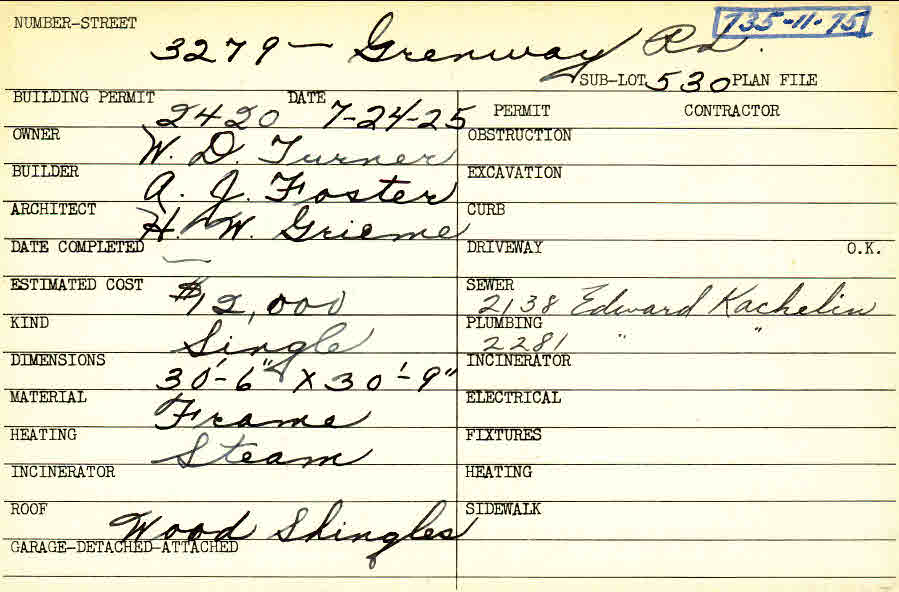 NUMBER-STREET 735-11-75
3279 — Grenway Rd.
SUB-LOT 530 PLAN FILE
BUILDING PERMIT 2420 DATE 7-24-25
PERMIT CONTRACTOR
OWNER W. D. Turner
OBSTRUCTION
BUILDER A. J. Foster
EXCAVATION
ARCHITECT H. W. Grieme
CURB
DATE COMPLETED —
DRIVEWAY O.K.
ESTIMATED COST $12,000
SEWER 2138 Edward Kachelin
KIND Single
PLUMBING 2281 " "
DIMENSIONS 30'-6" X 30'-9"
INCINERATOR
MATERIAL Frame
ELECTRICAL
HEATING Steam
FIXTURES
INCINERATOR
HEATING
ROOF Wood Shingles
SIDEWALK
GARAGE-DETACHED-ATTACHED